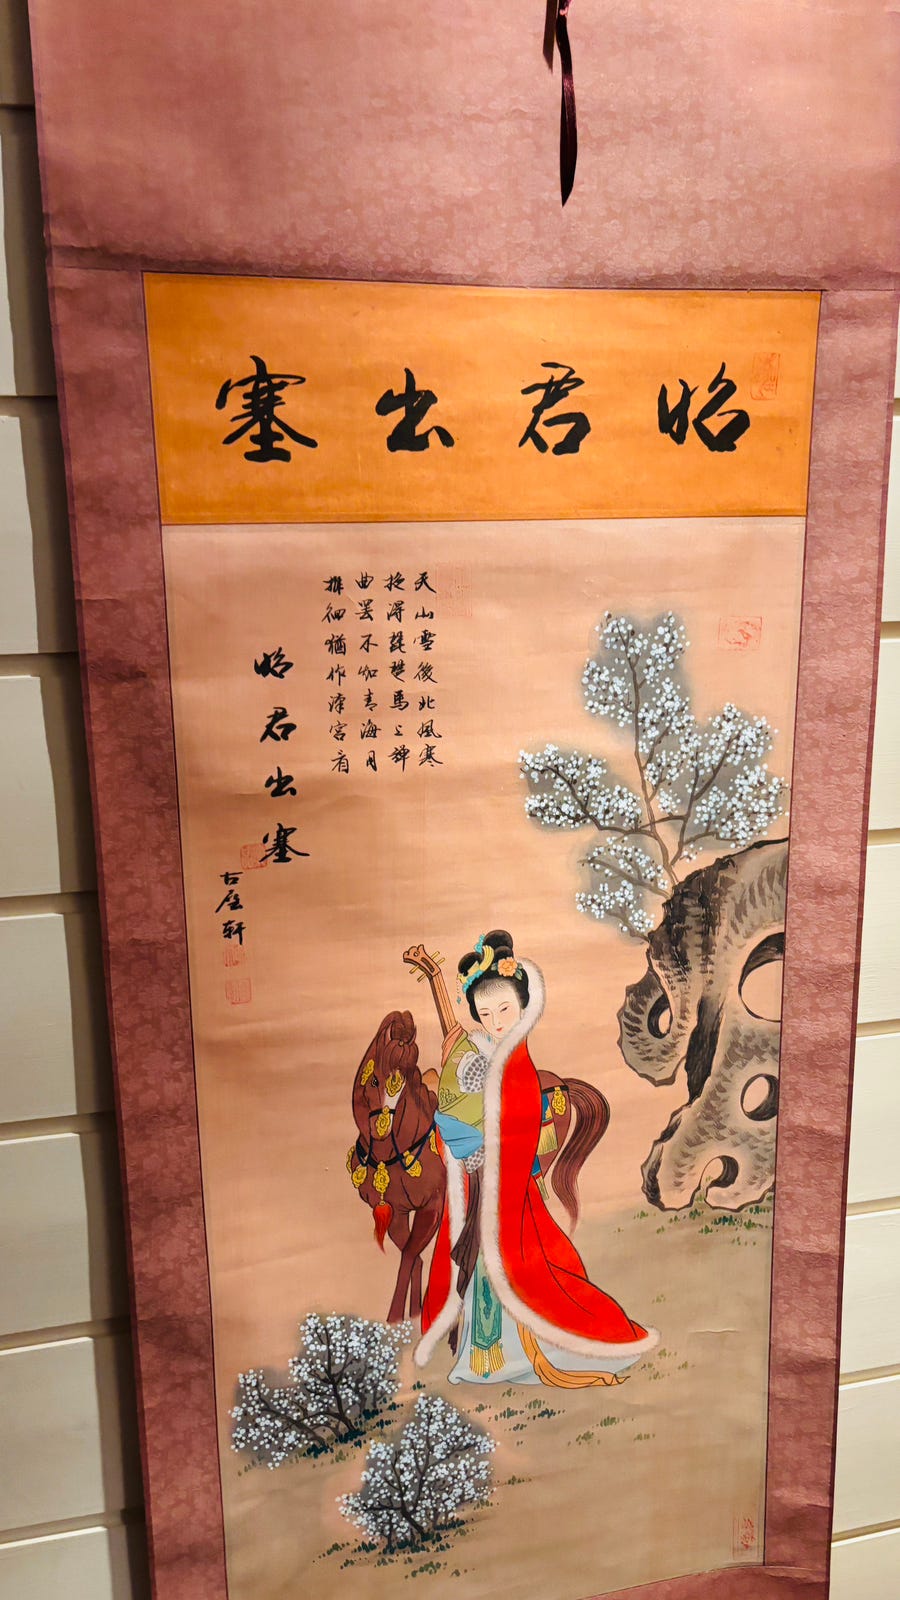 昭君出塞
天山雪後北風寒
抱得琵琶馬上彈
曲罢不知青海月
徘徊猶作漢宮看
昭君出塞